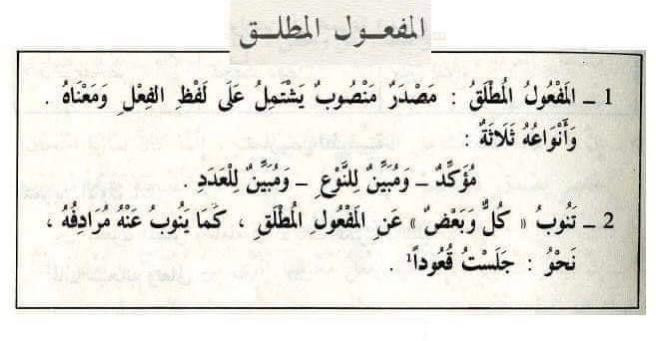 المفعـول المطلـق
1 ـ المَفْعُولُ المُطْلَقُ : مَصْدَرٌ مَنْصُوبٌ يَشْتَمِلُ عَلَى لَفْظِ الفِعْلِ وَمَعْنَاهُ .
وَأَنْوَاعُهُ ثَلَاثَةٌ :
مُؤَكِّدٌ ـ وَمُبَيِّنٌ لِلنَّوْعِ ـ وَمُبَيِّنٌ لِلْعَدَدِ .
2 ـ تَنُوبُ « كُلٌّ وَبَعْضٌ » عَنِ المَفْعُولِ المُطْلَقِ ، كَمَا يَنُوبُ عَنْهُ مُرَادِفُهُ ،
نَحْوُ : جَلَسْتُ قُعُوداً¹ .